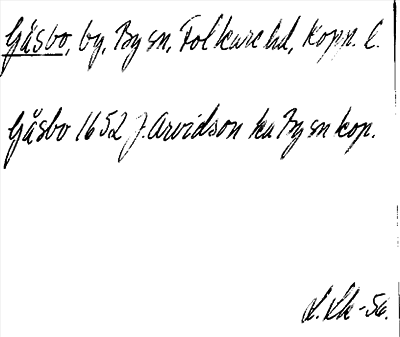 Gåsbo, by, By sn, Folkare hd, Kopp. l.
Gåsbo 1652 J. Arvidson ka By sn kop.